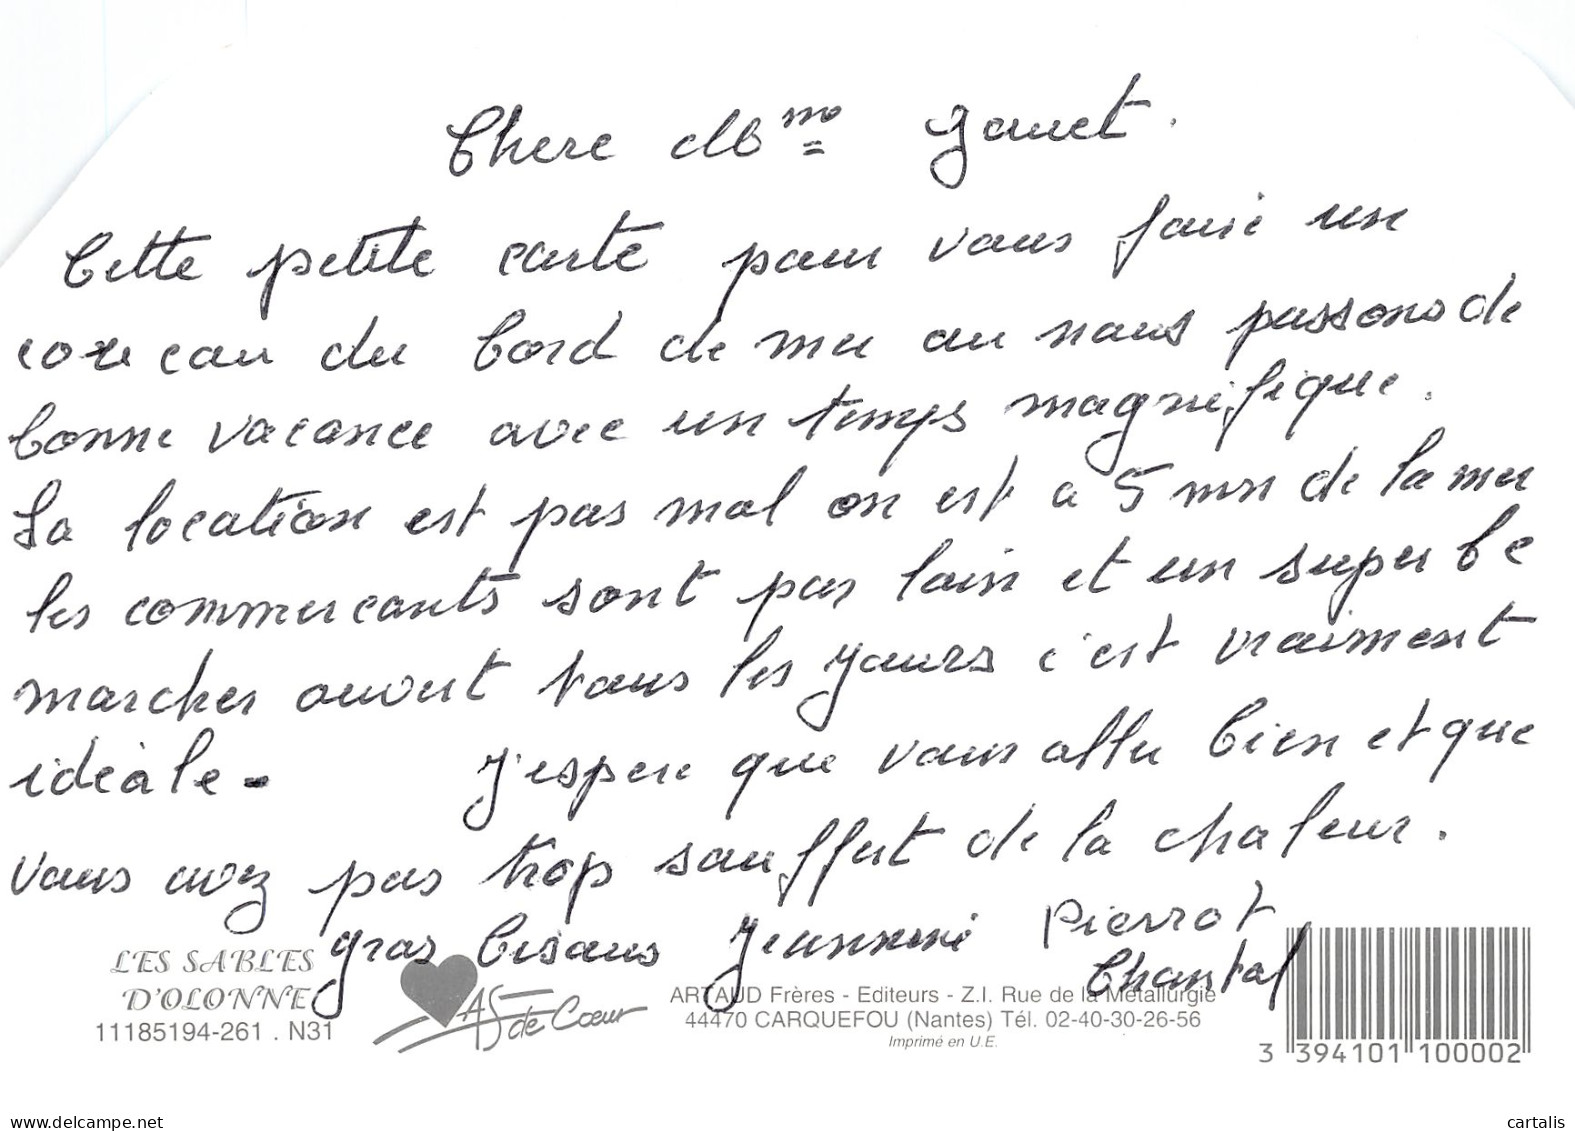 Chere Mme Gauet.
Cette petite carte pour vous faire un
coucou du bord de mer ou nous passons de
bonne vacance avec un temps magnifique.
La location est pas mal on est a 5 mn de la mer
les commercants sont pas loin et un super be
marcher ouvert tous les jours c'est vraiment
idéale -
J'espere que vous aller bien et que
vous avez pas trop souffert de la chaleur.
gros bisous Jeannine Pierrot
Chantal
LES SABLES
D'OLONNE
11185194-261 . N31
AS de Cœur
ARTAUD Frères - Editeurs - Z.I. Rue de la Métallurgie
44470 CARQUEFOU (Nantes) Tél. 02-40-30-26-56
Imprimé en U.E.
3 394101 100002
www.delcampe.net
cartalis